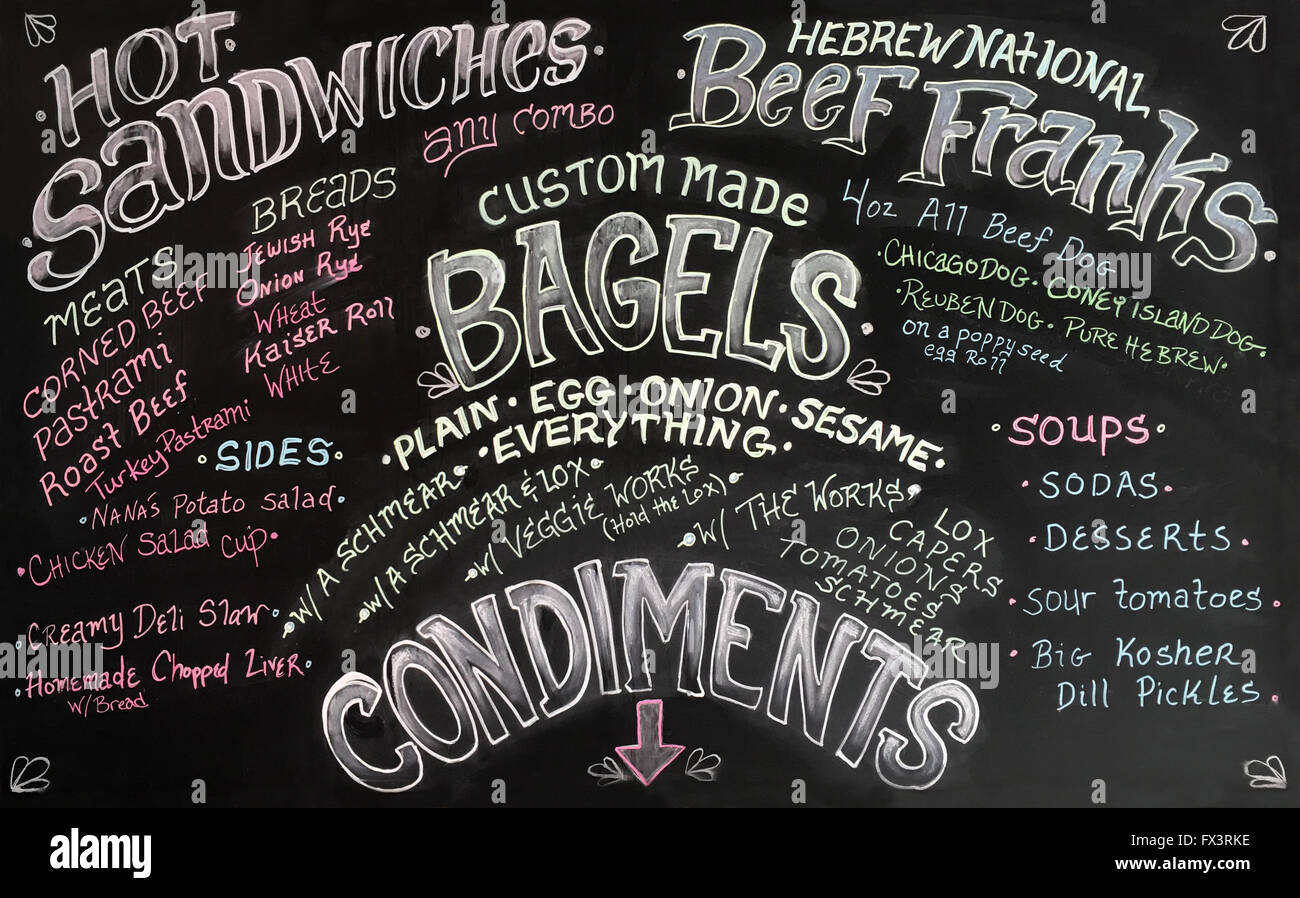 HOT
SANDWICHES
ANY COMBO
MEATS
CORNED BEEF
PASTRAMI
ROAST BEEF
TURKEY PASTRAMI
BREADS
JEWISH RYE
ONION RYE
WHEAT
KAISER ROLL
WHITE
• SIDES •
• NANA'S POTATO SALAD •
• CHICKEN SALAD CUP •
• CREAMY DELI SLAW •
• HOMEMADE CHOPPED LIVER •
W/BREAD
CUSTOM MADE
• BAGELS •
• PLAIN • EGG • ONION • SESAME •
• EVERYTHING •
• W/ A SCHMEAR •
• W/ A SCHMEAR & LOX •
• W/ VEGGIE WORKS
(HOLD THE LOX)
• W/ THE WORKS •
LOX
CAPERS
ONIONS
TOMATOES
SCHMEAR
CONDIMENTS
HEBREW NATIONAL
• BEEF FRANKS •
4oz All Beef Dog
• CHICAGO DOG • CONEY ISLAND DOG •
• REUBEN DOG • PURE HEBREW •
on a poppyseed
egg Roll
• SOUPS •
• SODAS •
• DESSERTS •
• SOUR TOMATOES •
• BIG KOSHER
DILL PICKLES •
alamy
alamy stock photo
FX3RKE
www.alamy.com